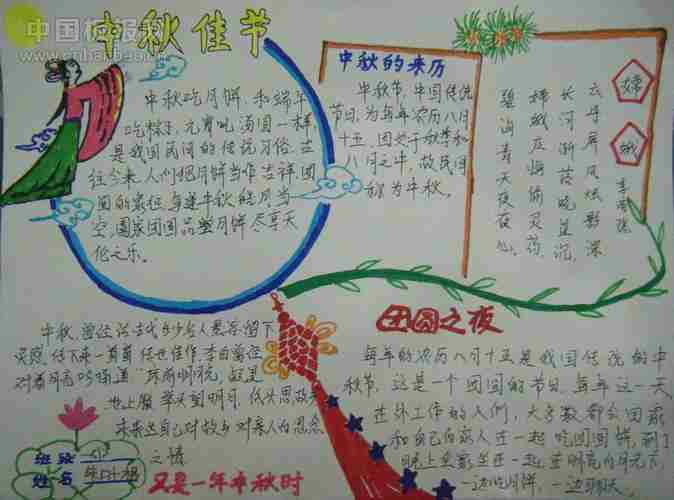 中国板报网
中秋佳节
中秋吃月饼,和端午
吃粽子,元宵吃汤圆一样,
是我国民间的传统习俗。古
往今来,人们把月饼当作吉祥、团
圆的象征。每逢中秋,皓月当
空,阖家团圆,品饼
伦之乐。
中秋的来历
中秋节,中国传统
节日,为每年农历八月
十五,因处于秋季和
八月之中,故民间
称为中秋。
嫦娥
云母屏风烛影深
长河渐落晓星沉,
嫦娥应悔偷灵药,
碧海青天夜夜心。
中秋,曾经
传下来一首首传世佳作,李白曾经
对着月亮吟诵道
地上霜 举头望明月,低头思故乡
来表达自己对故乡对亲人的思念
之情
班级
姓名
又是一年中秋时
团圆之夜
每年的农历八月十五是我国传统的中
秋节,这是一个团圆的节日,每年这一天
在外工作的人们,大多数都会回家
和自己的家人在一起吃团圆饼,到了
晚上全家坐在一起,在明亮的月光下,
一边吃月饼,一边聊天。